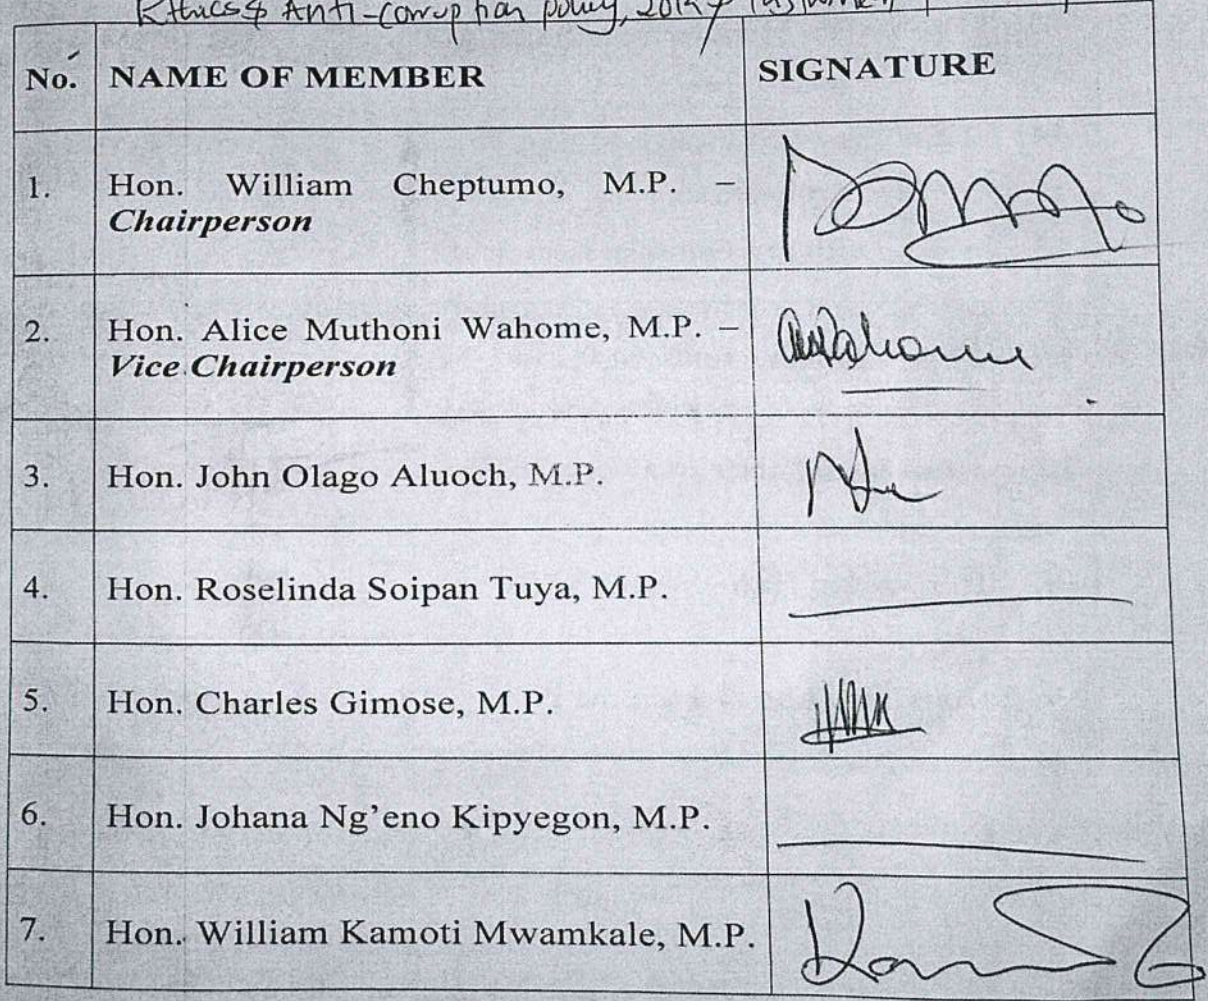 Ethics & Anti-Corruption policy, 2019
No. NAME OF MEMBER SIGNATURE
1. Hon. William Cheptumo, M.P. –
Chairperson
2. Hon. Alice Muthoni Wahome, M.P. –
Vice Chairperson
3. Hon. John Olago Aluoch, M.P.
4. Hon. Roselinda Soipan Tuya, M.P.
5. Hon. Charles Gimose, M.P.
6. Hon. Johana Ng'eno Kipyegon, M.P.
7. Hon. William Kamoti Mwamkale, M.P.